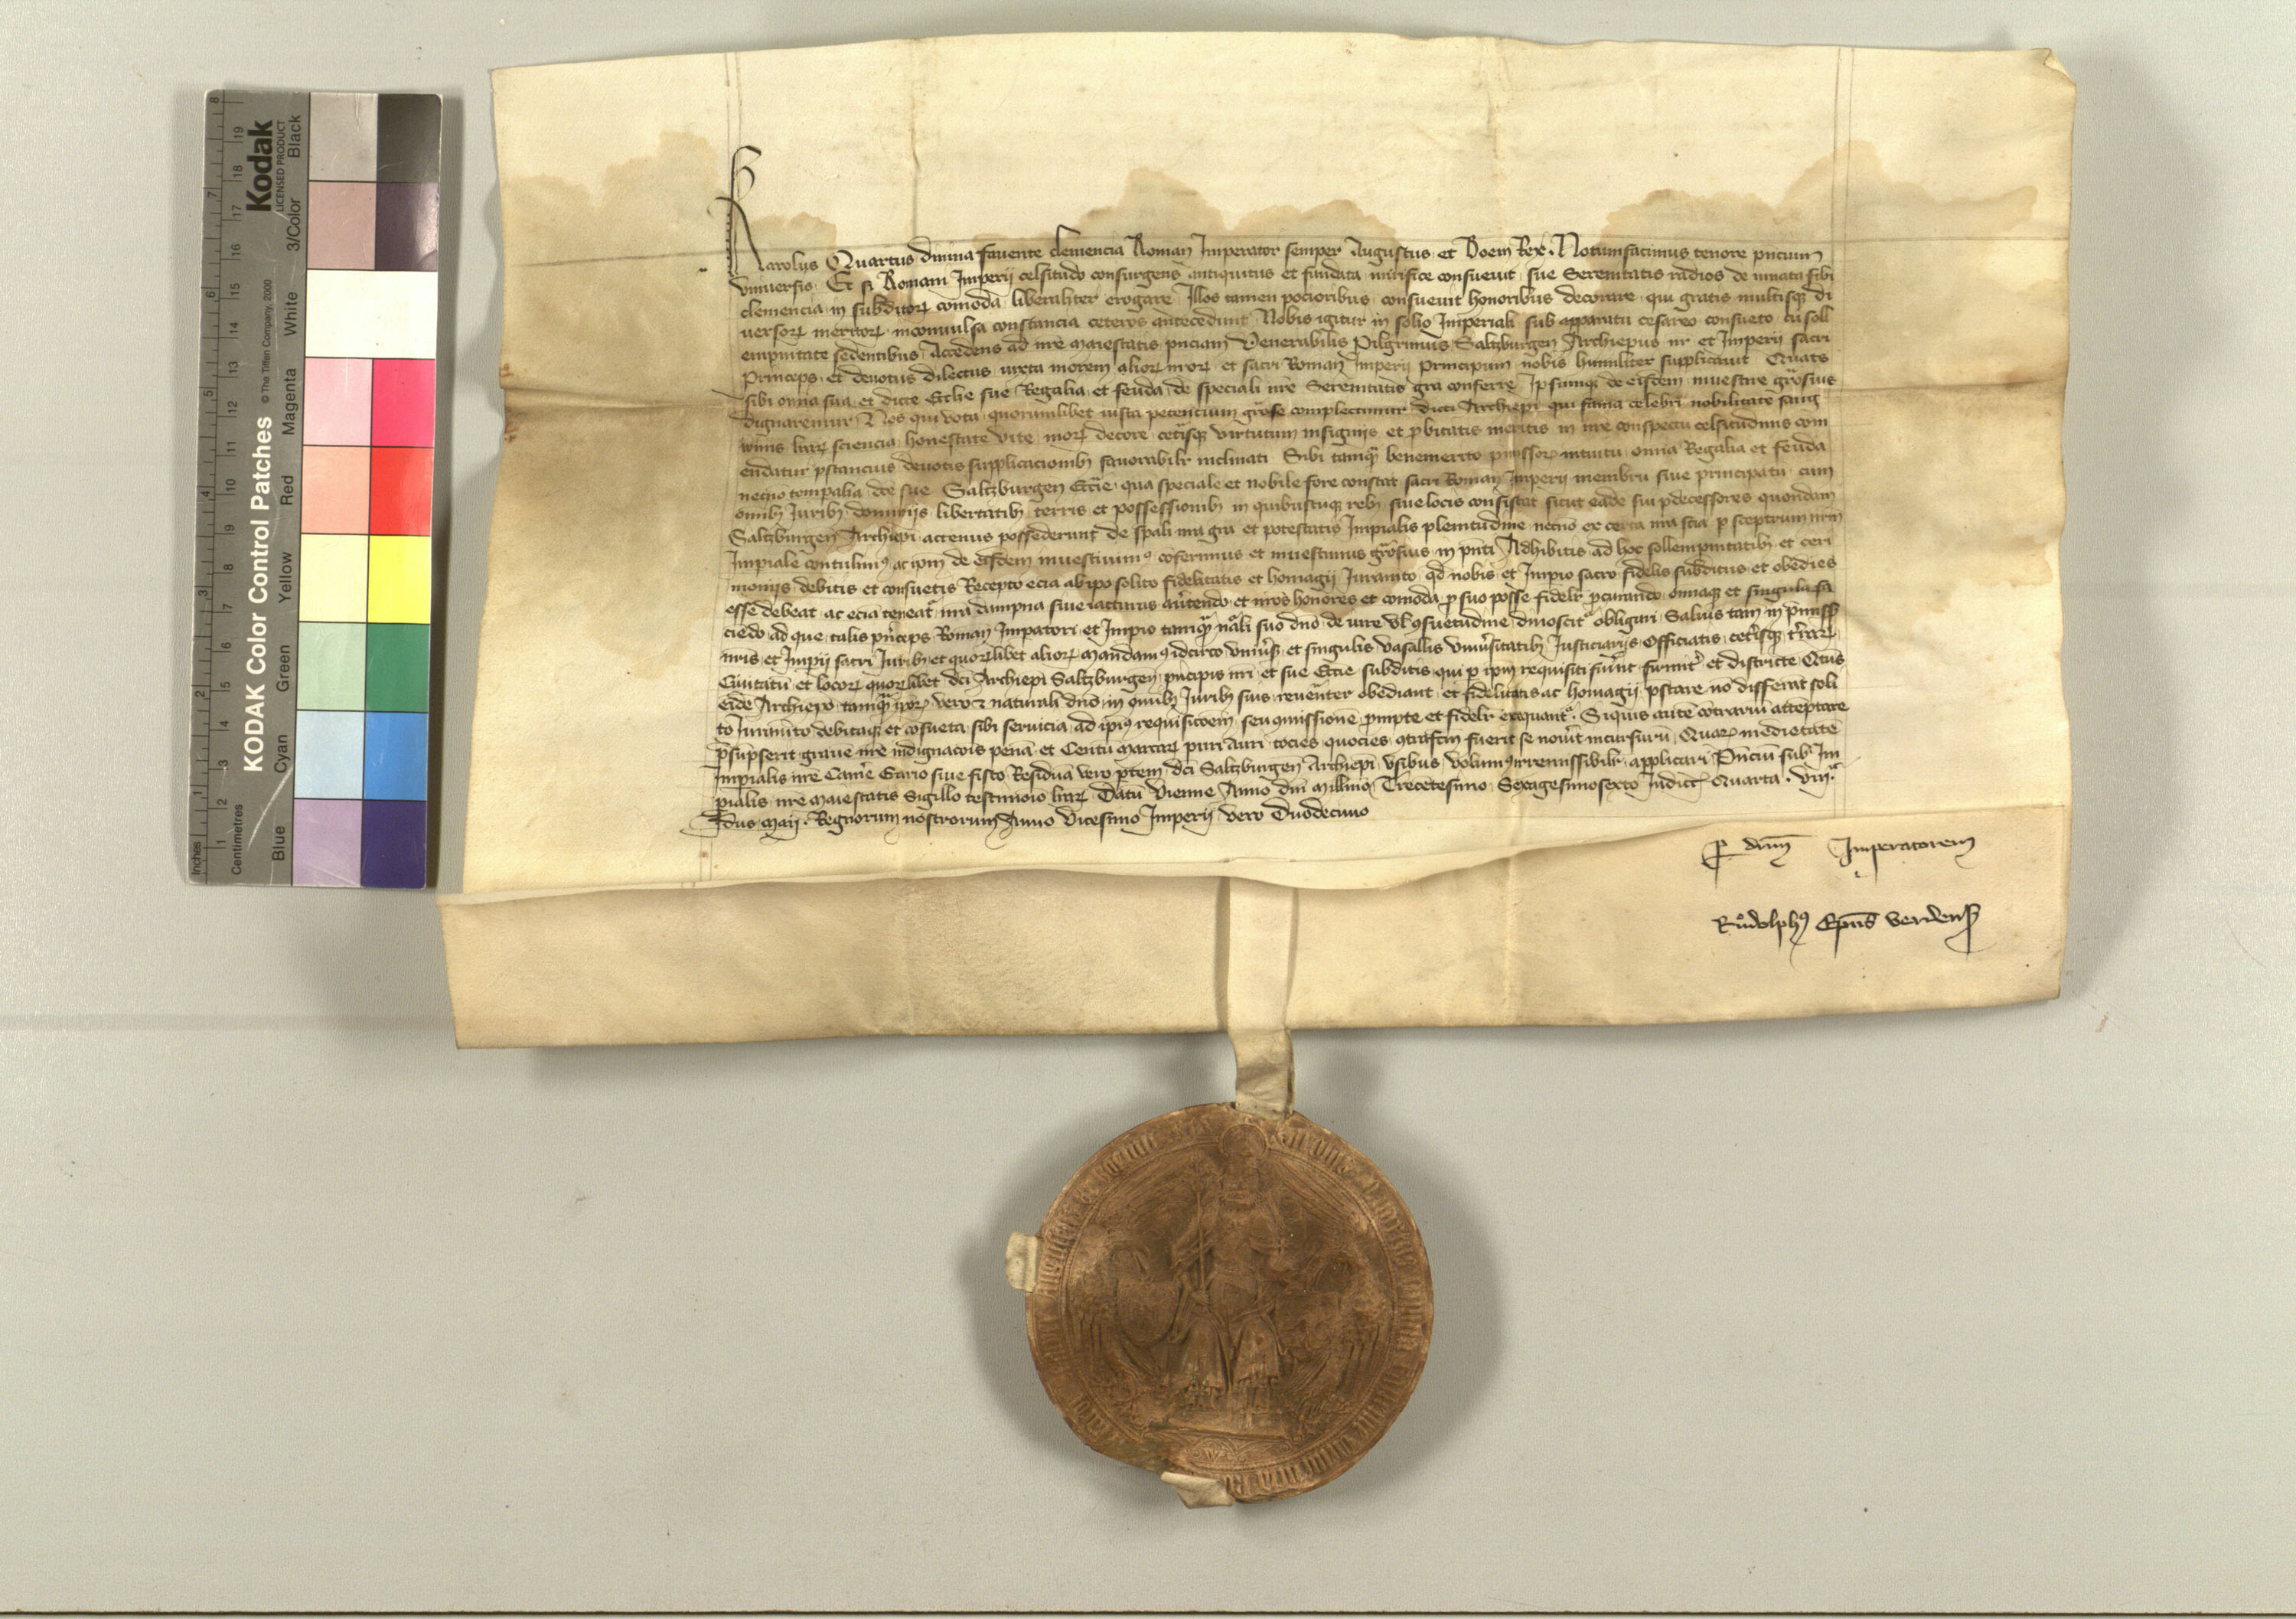 KODAK Color Control Patches © The Tiffen Company, 2000
Kodak
LICENSED PRODUCT
Inches 1 2 3 4 5 6 7 8
Centimetres 1 2 3 4 5 6 7 8 9 10 11 12 13 14 15 16 17 18 19
Blue Cyan Green Yellow Red Magenta White 3/Color Black
Karolus Quartus diuina fauente clemencia Roman Imperator semper Augustus et Boem Rex. Notumfacimus tenore pncium
vniuersis. Et si Romani Imperij celsitudo consurgens antiquitus et fundata mirifice consueuit sue Serenitatis radios de innata sibi
clemencia in subditoꝝ comoda liberaliter erogare Illos tamen pocioribus consueuit honoribus decorare qui gratis multisqꝫ di
uersoꝝ meritoꝝ inconuulsa constancia ceteros antecedunt Nobis igitur in solio Imperiali sub apparatu cesareo consueto cu soll
empnitate sedentibus Accedens ad nre maiestatis pnciam Venerabilis Pilgrimus Saltzburgen Archiepus nr et Imperij sacri
Princeps et deuotus dilectus iuxta morem alioꝝ nroꝝ et sacri Roman Imperij principum nobis humiliter supplicauit Quats
sibi omnia sua et dicte Ecclie sue Regalia et feuda de speciali nre Serenitatis gra conferre Ipsumqꝫ de eisdem inuestire grosius
dignaremur Nos qui vota quorumlibet iusta petencium grose complectimur dicti Archiepi qui fama celebri nobilitate sang
winis lraꝝ sciencia honestate vite moꝝ decore cetisqꝫ virtutum insignijs et pbitatis meritis in nre conspectu celsitudinis com
endatur pstancius deuotis supplicacionibꝫ fauorabilr inclinati Sibi tamqꝫ benemerito pmissoꝝ intuitu omnia Regalia et feuda
necno tempalia dce sue Saltzburgen Eccie qua speciale et nobile fore constat sacri Roman Imperij membru siue principatu cum
omibꝫ Iuribꝫ dominijs libertatibꝫ terris et possessionibꝫ in quibuscuqꝫ rebꝫ siue locis consistat sicut eade sui pdecessores quondam
Saltzburgen Archiepi actenus possederunt de spali nra gra et potestatis Impialis plenitudine necno ex certa nra scia p sceptrum nrm
Impiale contulimꝰ ac ipm de eisdem inuestiuimꝰ coferimus et inuestimus grosius in pnti Adhibitis ad hoc sollempnitatibꝫ et ceri
monijs debitis et consuetis Recepto ecia ab ipo solito fidelitatis et homagij Iuramto qd nobis et Impio sacro fidelis subditus et obedies
esse debeat ac ecia teneat nra dampna siue iacturas auertendo et nros honores et comoda p suo posse fidelr pcurando omniaqꝫ et singula fa
ciedo ad que talis pnceps Roman Impatori et Impio tamqꝫ nali suo dno de iure vel ꝯsuetudine dinoscit obligari Saluis tam in pmissis
nris et Impij sacri Iuribꝫ et quoꝝlibet alioꝝ Mandamꝰ idcirco vniusis et singulis vasallis vniusitatibꝫ Iusticiarijs Officiatis cetisqꝫ traꝝ
Ciuitatu et locoꝝ quoꝝlibet dci Archiepi Saltzburgen pncipis nri et sue Eccie subditis qui p ipm requisiti fuint firmit et districte Qtus
eide Archiepo tamqꝫ ipoꝝ vero et naturali dno in omibꝫ Iuribꝫ suis reuenter obediant et fidelitatis ac homagij pstare no differat soli
to Iuramto debitaqꝫ et cosueta sibi seruicia ad ipiꝰ requisicoem seu omissione pmpte et fidelr exequant. Siquis aute cotrariu atteptare
psupserit graue nre indignacois pena et Centu marcaꝝ puri Auri tocies quocies ꝯtrafcm fuerit se nouit incursuru Quaꝝ medietate
Impialis nre Came Erario siue fisco Residua vero ptem dci Saltzburgen Archiepi vsibus volumꝰ irremissibilr applicari Pnciu sub Im
pialis nre maiestatis Sigillo testimoio lraꝝ Datu Vienne Anno dni Millmo Trecetesimo Sexagesimosexto Indict Quarta. viij.
Idus Maij. Regnorum nostrorum Anno vicesimo Imperij vero Duodecimo
p dnm Imperatorem
Rudolphꝰ Epus verdensis